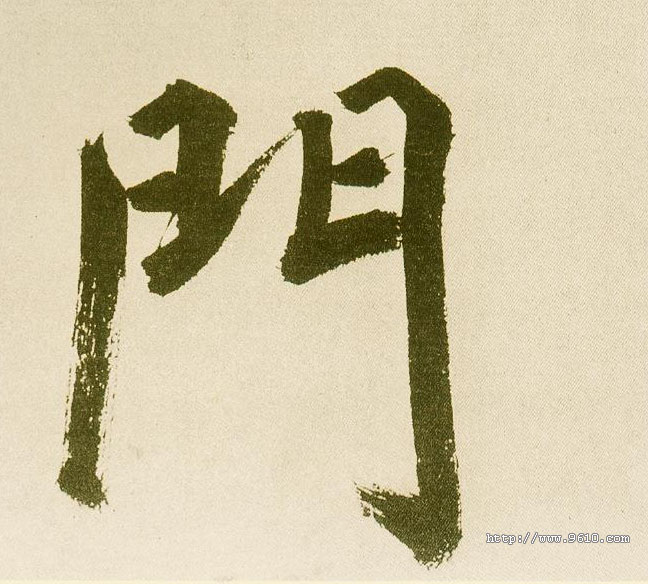 門
http://www.9610.com